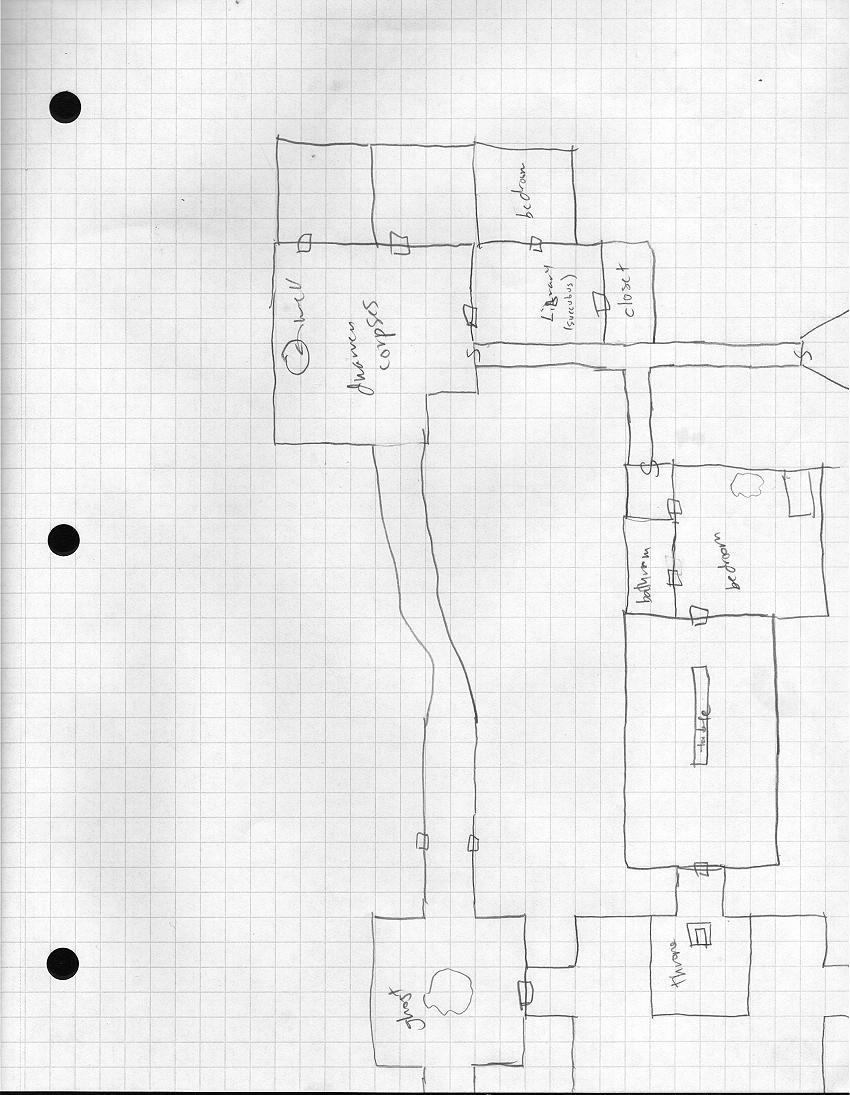 bedroom
well
dwarven
corpses
Library
(succubus)
closet
S
S
S
bathroom
bedroom
table
throne
ghost